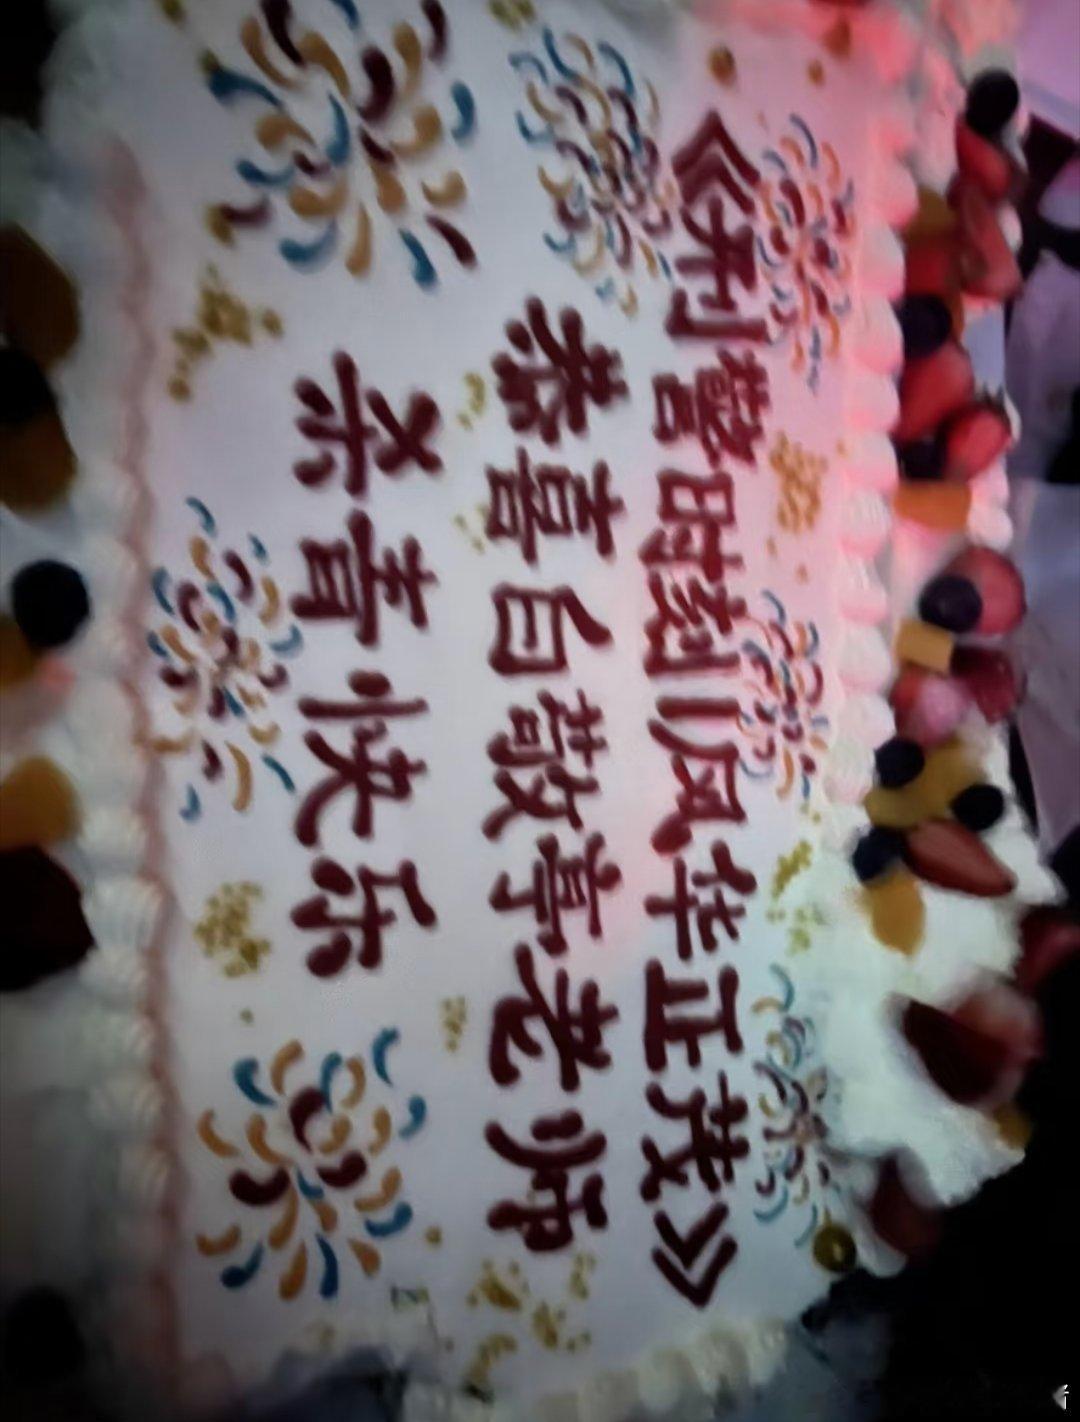 《刑警时刻风华正茂》
恭喜白敬亭老师
杀青快乐